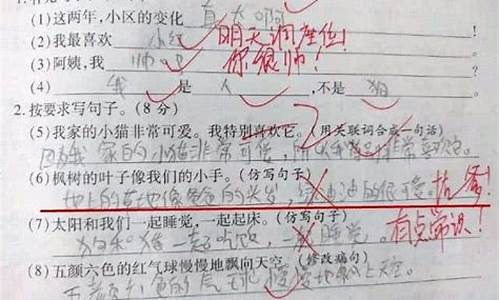 (1)这两年,小区的变化 真大啊
(2)我最喜欢 小红 明天调座位!
(3)阿姨,我 帅吧 你很帅!
(4) 我 是 人 ,不是 狗
2.按要求写句子。(8分)
(5)我家的小猫非常可爱。我特别喜欢它。(用关联词合成一句话)
因为我家的小猫非常可爱,所以我非常喜欢它。
(6)枫树的叶子像我们的小手。(仿写句子)
地上的草地像爸爸的头发,绿油油的很可爱。抗争!
(7)太阳和我们一起睡觉,一起起床。(仿写句子)
狗和猪一起吃饭,一起睡觉。 有点常识!
(8)五颜六色的红气球慢慢地飘向天空。(修改病句)
五颜六色的气球慢慢地飘上天空。